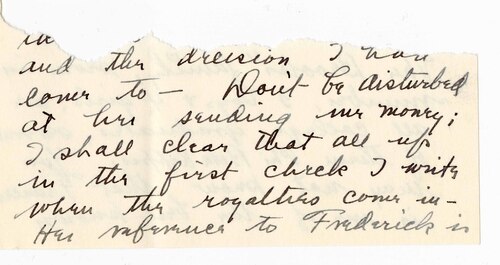 in
and the decision I
come to — Don't be disturbed
at her sending me money;
I shall clear that all up
in the first check I write
when the royalties come in —
Her reference to Frederick is